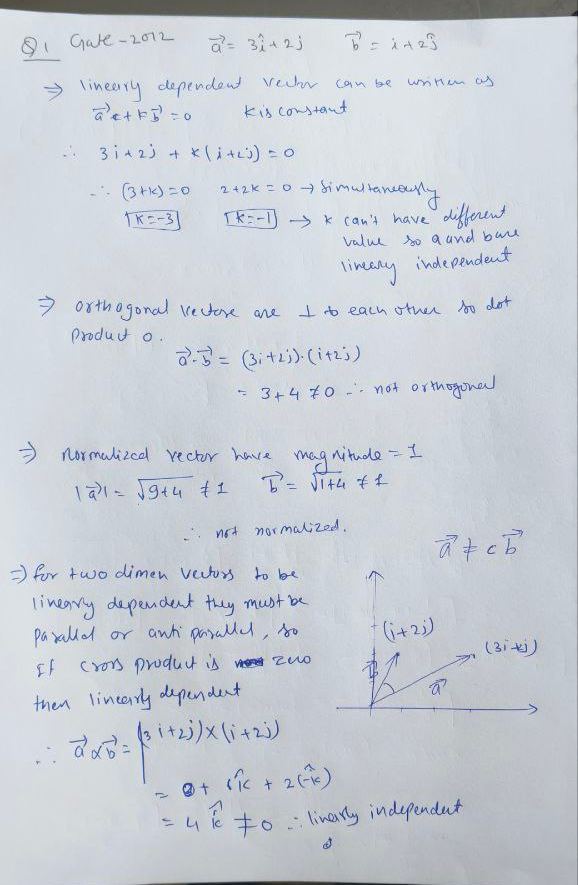 Q1 Gate-2012 a⃗ = 3î+2j b⃗ = i+2ĵ
⇒ lineary dependent vector can be written as
a⃗ + k b⃗ = 0 K is constant
∴ 3i+2j + k(i+2j) = 0
∴ (3+k)=0 2+2k = 0 → simultaneously
k=-3 k=-1 → k can't have different
value so a and b are
lineary independent
⇒ orthogonal vectors are ⊥ to each other so dot
product 0.
a⃗.b⃗ = (3i+2j).(i+2j)
= 3+4 ≠0 ∴ not orthogonal
⇒ Normalized vector have magnitude = 1
|a⃗| = √9+4 ≠ 1 b⃗ = √1+4 ≠ 1
∴ not normalized.
a⃗ ≠ c b⃗
⇒ for two dimen vectors to be
linearly dependent they must be
parallel or anti parallel, so
If cross product is zero
then linearly dependent
(i+2j)
(3i+2j)
b⃗
a⃗
∴ a⃗ x b⃗ = (3i+2j)×(i+2j)
= 0+ 6k̂ + 2(-k̂)
= 4 k̂ ≠ 0 ∴ linearly independent